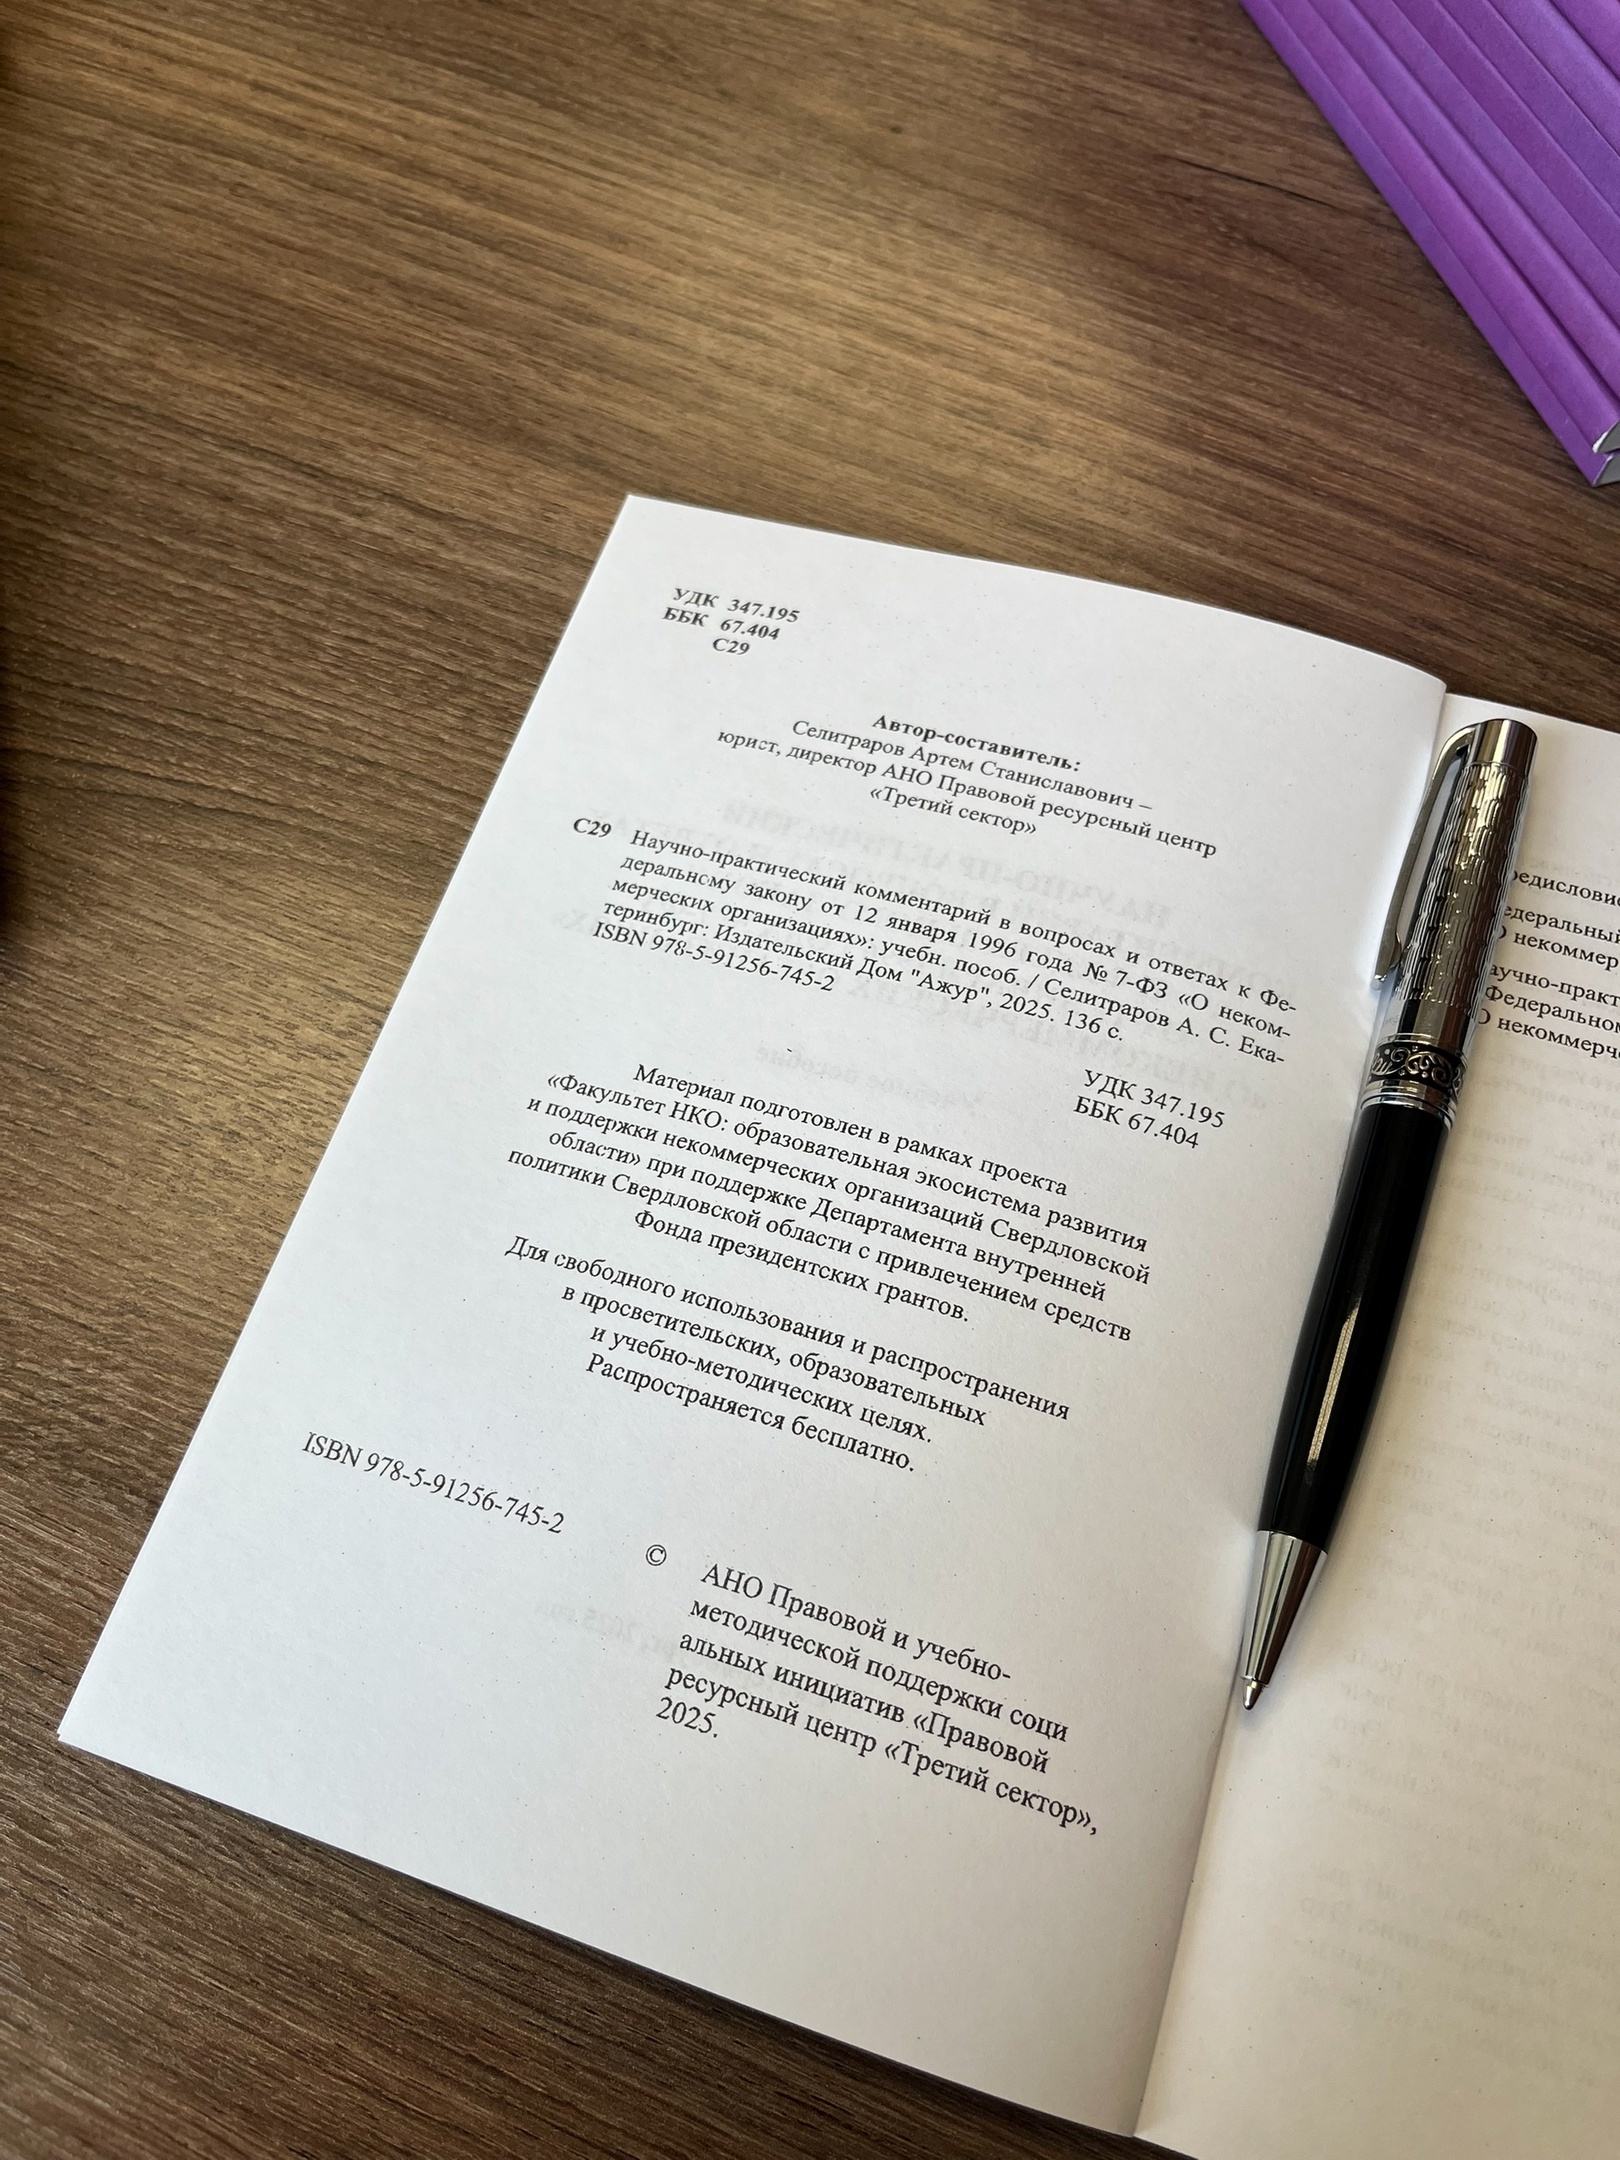 УДК 347.195
ББК 67.404
С29
Автор-составитель:
Селитраров Артем Станиславович –
юрист, директор АНО Правовой ресурсный центр
«Третий сектор»
С29 Научно-практический комментарий в вопросах и ответах к Фе-
деральному закону от 12 января 1996 года № 7-ФЗ «О неком-
мерческих организациях»: учебн. пособ. / Селитраров А. С. Ека-
теринбург: Издательский Дом "Ажур", 2025. 136 с.
ISBN 978-5-91256-745-2
УДК 347.195
ББК 67.404
Материал подготовлен в рамках проекта
«Факультет НКО: образовательная экосистема развития
и поддержки некоммерческих организаций Свердловской
области» при поддержке Департамента внутренней
политики Свердловской области с привлечением средств
Фонда президентских грантов.
Для свободного использования и распространения
в просветительских, образовательных
и учебно-методических целях.
Распространяется бесплатно.
ISBN 978-5-91256-745-2
© АНО Правовой и учебно-
методической поддержки соци
альных инициатив «Правовой
ресурсный центр «Третий сектор»,
2025.
редисловие
едеральный
О некоммер
аучно-практ
Федеральном
О некоммерч